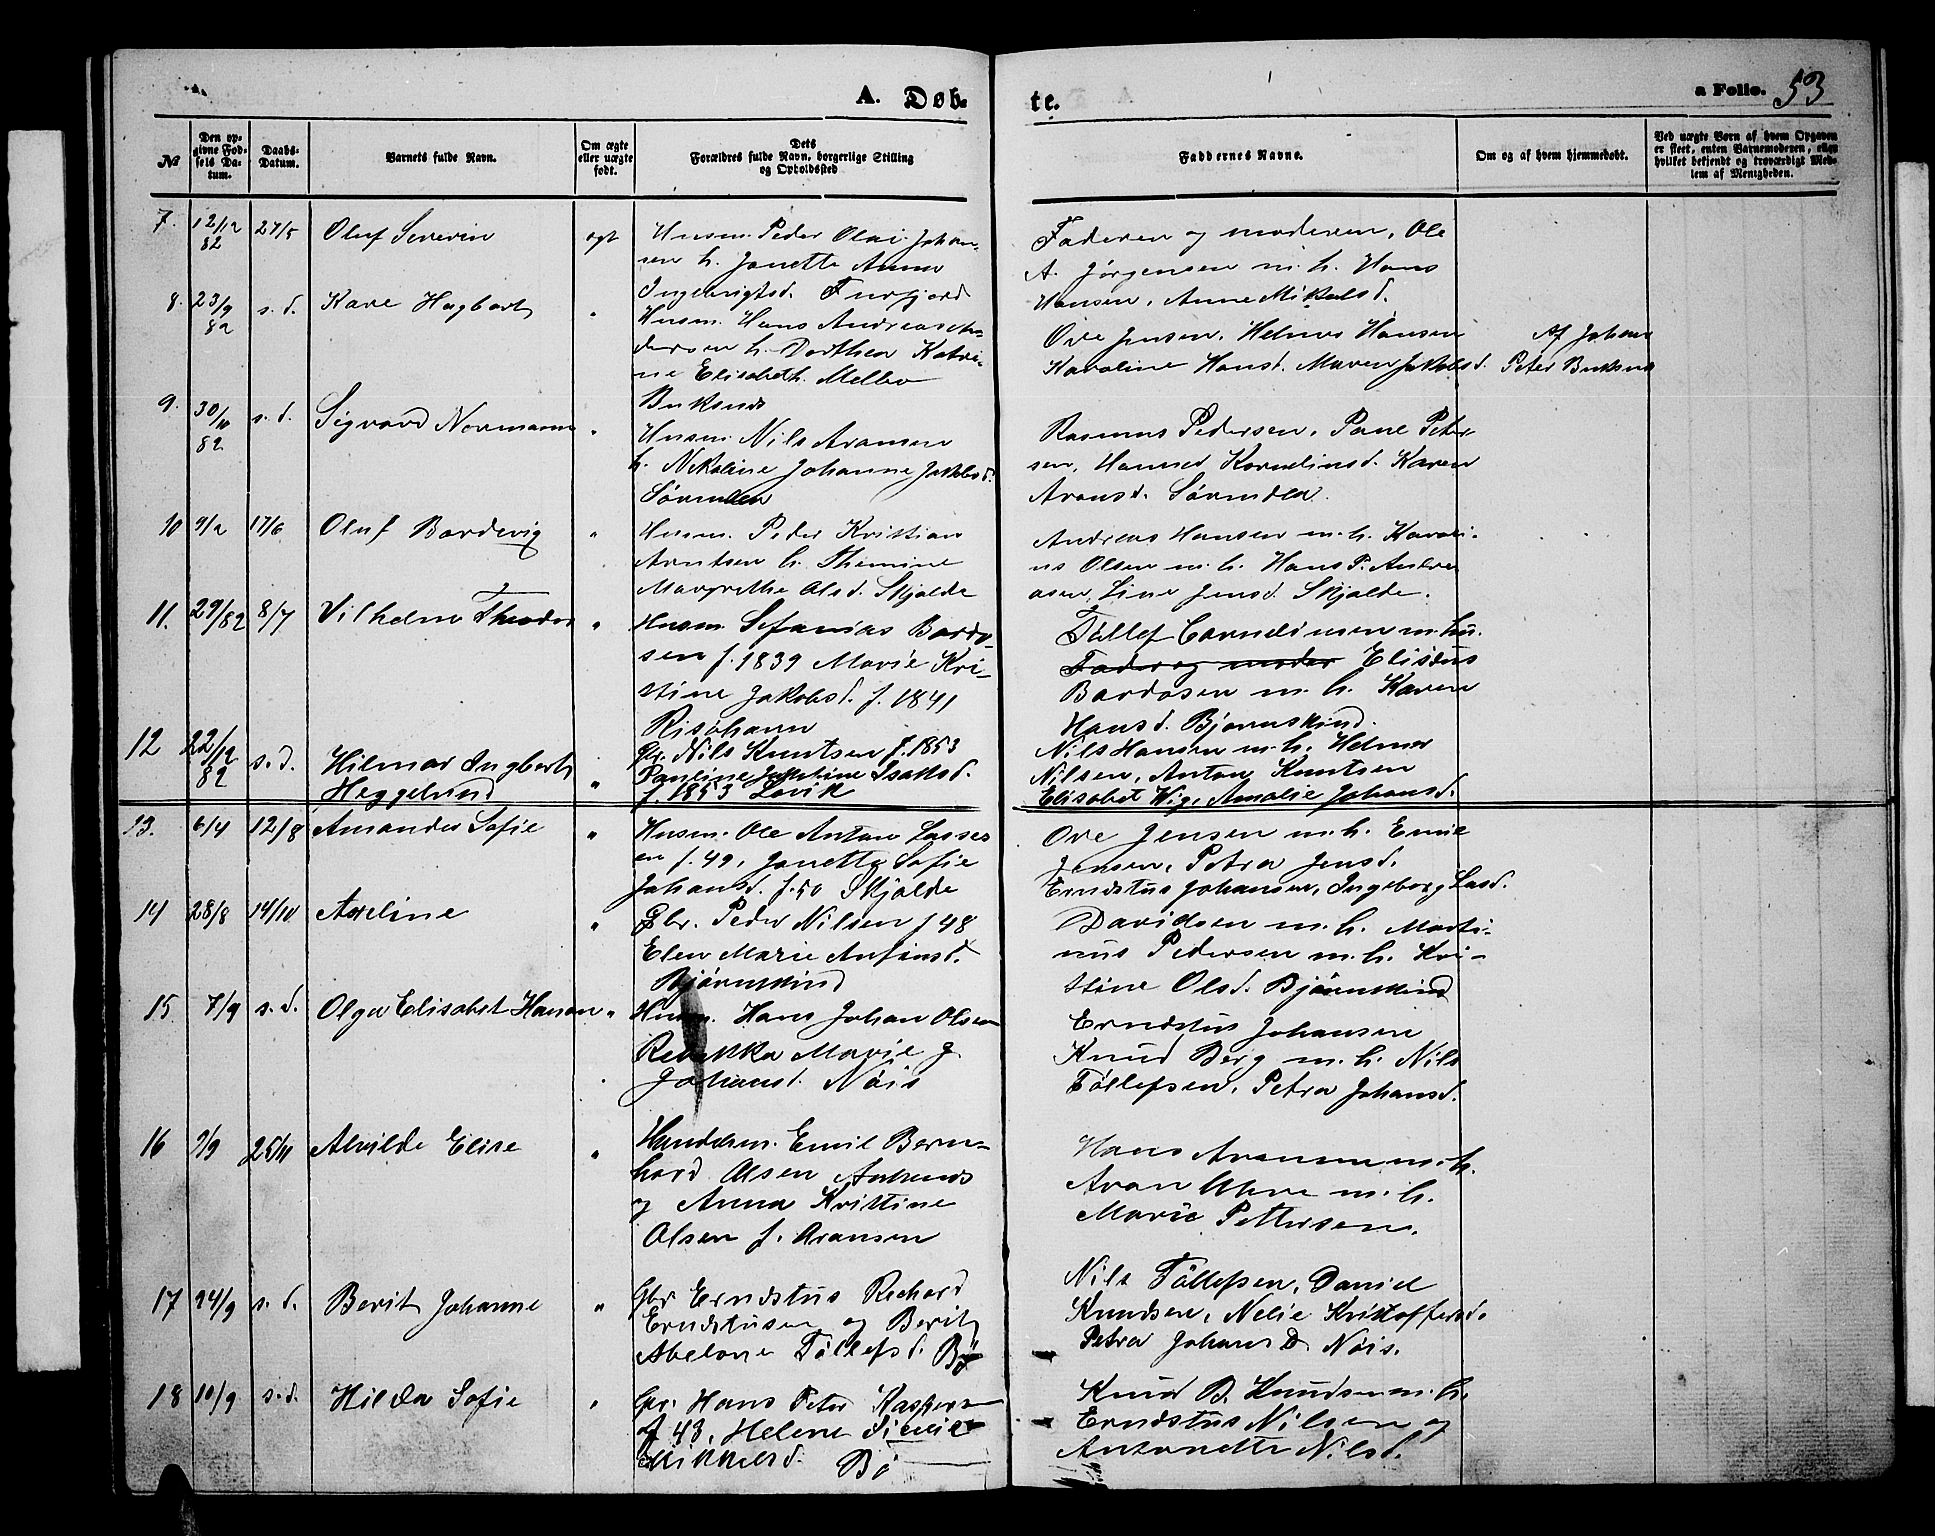 A. Døb-
te.
a Folio. 53
No
Den op-
givne Fød-
sels Da-
tum.
Daabs-
Datum.
Barnets fulde Navn.
Om ægte
eller uægte
født.
Dets
Forældres fulde Navn, borgerlige Stilling
og Opholdssted
Faddernes Navne.
Om og af hvem hjemmedøbt.
Ved uægte Børn af hvem Opgaven
er skeet, enten Barnemoderen, eller
hvilket bekjendt og troværdigt Med-
lem af Menigheden.
7. 12/12 82 27/5 Oluf Severin egt
Husm. Peder Olai Johan-
sen h. Janette Anna
Ingebrigtsd. Furfjord
Faderen og moderen, Ole
A. Jørgensen m. h. Hans
Hansen, Anne Mikalsd.
8. 23/9 82 s. d. Kare Hagbart "
Husm. Hans Andreas
h. Dorthea Katri-
ne Elisabeth. Melbo
Buksnes
Ove Jensen, Helmer Hansen
Karoline Hansd. Maren Jakobsd.
Af Johan
Peter Buksnes
9. 30/10 82 s. d. Sigvard Normann "
Husm. Nils Aronsen
h. Nikoline Johanne Jakobsd.
Sørmela
Rasmus Pedersen, Pane Peter-
sen, Hanna Kornelinsd. Karen
Aronsd. Sørmela.
10 9/2 17/6 Oluf Bardevig "
Husm. Peder Kristian
Arntsen h. Themine
Margrethe Olsd. Skjolde
Andreas Hansen m. h. Karoli-
us Olsen m. h. Hans P. Andre
asen, Line Jensd. Skjolde.
11. 29/82 8/7 Vilhelm Theodor "
Husm. Sefanias Bardo-
sen f. 1839 Marie Kri-
stine Jakobsd. f. 1841
Risøhavn
Tøllef Cornelinsen m. hu.
Fader og moder Eliseus
Bardosen m. h. Karen
Hansd. Bjørnskind.
12 22/12 82 s. d. Hilmar Ingbart
Heggelund "
Gbr. Nils Knutsen f. 1853
Pauline Isaksd.
f. 1853 Lovik
Nils Hansen m. h. Helmer
Nilsen, Anton Knutsen
Elisabet Wig, Amalie Johansd.
13. 6/4 12/8 Amanda Sofie "
Husm. Ole Anton Lasses
en f. 49, Janette Sofie
Johansd. f. 50 Skjolde
Ove Jensen m. h. Emil
Jensen, Petra Jensd.
Erndstus Johansen, Ingeborg Lasd.
14 28/8 14/10 Axeline "
Gbr. Peder Nilsen f 48
Elen Marie Anfinsd.
Bjørnskind
Davidsen m. h. Marti-
nus Pedersen m. h. Kri-
stine Olsd. Bjørnskind
15 7/9 s. d. Olga Elisabet Hansen "
Husm. Hans Johan Olsen
Rebekka Marie J
Johansd. Nøis
Erndstus Johansen
Knud Berg m. h. Nils
Tøllefsen, Petra Johansd.
16 9/9 25/11 Alvilde Elise "
Handelsm. Emil Bern-
hard Olsen
og Anna Kristine
Olsen f. Aronsen
Hans Aronsen m. h.
Aron m. h.
Marie Pettersen.
17 24/9 s. d. Berit Johanne "
Gbr Erndstus Richard
Erndstusen og Berit
Abelone Tøllefsd. Bø
Nils Tøllefsen, Daniel
Knudsen, Nelie Kristoffersd.
Petra Johans D. Nøis.
18 10/9 s. d. Hilda Sofie "
Gbr. Hans Peter Kaspersen
f 43, Helene
Mikkelsd. Bø
Knud B. Knudsen m. h.
Erndstus Nilsen og
Antonette Nilsd.